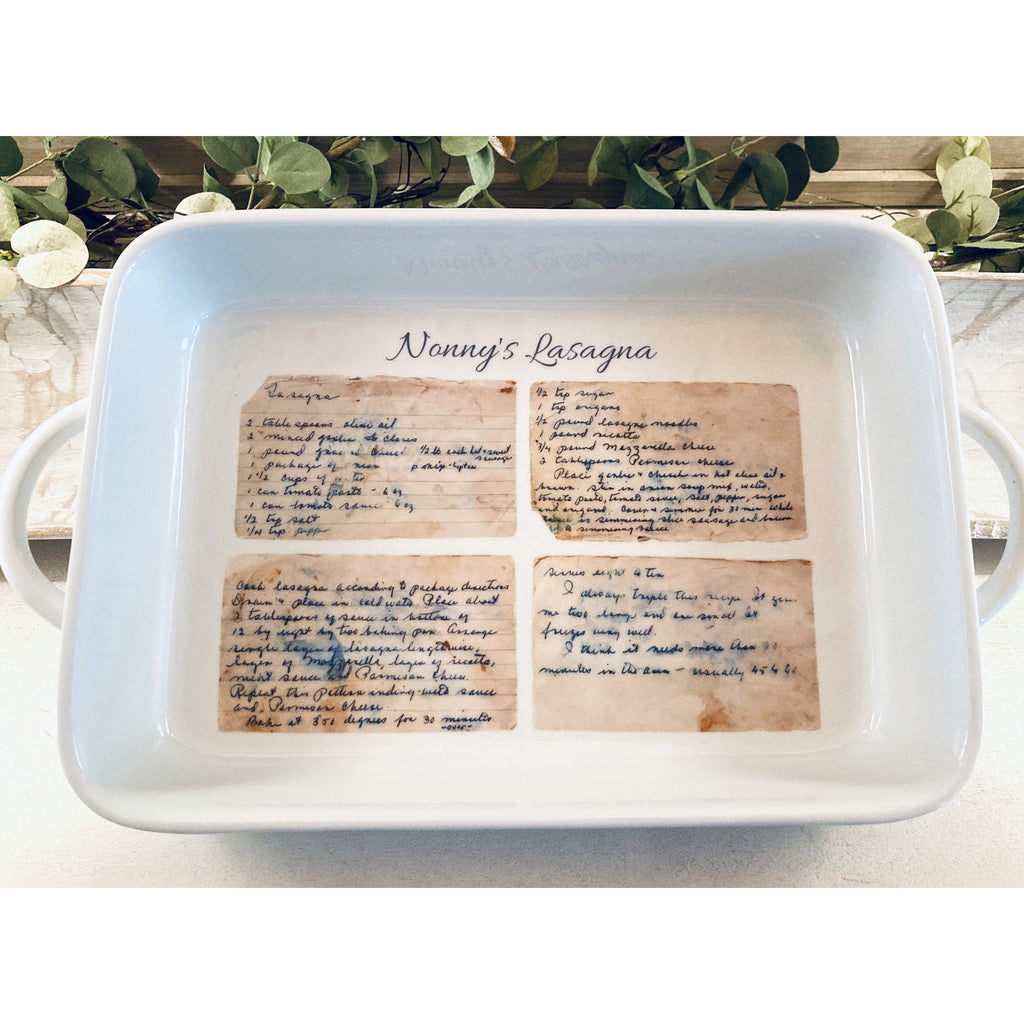 Nonny's Lasagna
Lasagna
2 tablespoons olive oil
2 minced garlic cloves
1 pound ground chuck 1/2 lb each hot & sweet
sausage
1 package of onion soup mix - lipton
1 1/2 cups of water
1 can tomato paste - 6 oz
1 can tomato sauce - 6 oz
1/2 tsp salt
1/4 tsp pepper
1/2 tsp sugar
1 tsp oregano
1/2 pound lasagna noodles
1 pound ricotta
3/4 pound Mozzarella cheese
2 tablespoons Parmesan cheese
Place garlic & chuck in hot olive oil &
brown. Stir in onion soup mix, water,
tomato paste, tomato sauce, salt, pepper, sugar
and oregano. Cover & simmer for 30 min. While
sauce is simmering slice sausage and brown
simmering sauce
Cook lasagna according to package directions
Drain & place in cold water. Place about
3 tablespoons of sauce in bottom of
12 by eight by two baking pan. Arrange
single layer of lasagna lengthwise,
layer of Mozzarella, layer of ricotta,
meat sauce and Parmesan cheese.
Repeat this pattern ending with sauce
and Parmesan cheese.
Bake at 350 degrees for 30 minutes
-over-
Serves eight to ten
I always triple this recipe it gives
me two large and one small it
freezes very well.
I think it needs more than 30
minutes in the oven - usually 45 to 60